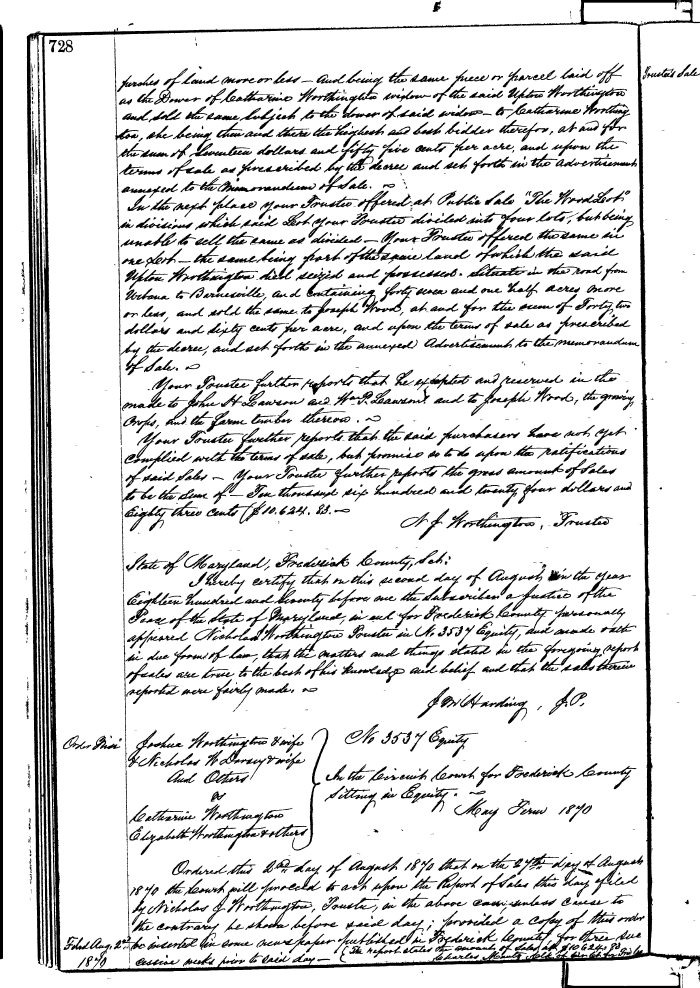 728
Trustee's Sale
perches of land more or less – and being the same piece or parcel laid off
as the Dower of Catharine Worthington widow of the said Upton Worthington
and sold the same subject to the dower of said widow – to Catharine Worthing
ton, she being then and there the highest and best bidder therefor, at and for
the sum of Seventeen dollars and fifty five cents per acre, and upon the
terms of sale as prescribed by the decree and set forth in the Advertisement
annexed to the Memorandum of Sale. –
In the next place your Trustee offered at Public Sale "The Wood Lot"
in divisions which said Lot your Trustee divided into four lots, but being
unable to sell the same as divided – Your Trustee offered the same in
one Lot – the same being part of the same land of which the said
Upton Worthington died seized and possessed. Situate in the road from
Urbana to Barnesville, and containing forty seven and one half acres more
or less, and sold the same to Joseph Wood, at and for the sum of Forty two
dollars and sixty cents per acre, and upon the terms of sale as prescribed
by the decree, and set forth in the annexed Advertisement to the memorandum
of Sale. –
Your Trustee further reports that he excepted and reserved in the
made to John H Lawson and Wm P. Lawson and to Joseph Wood, the growing
Crops, and the farm timber thereon. –
Your Trustee further reports that the said purchasers have not yet
complied with the terms of sale, but promise so to do upon the ratifications
of said Sales – Your Trustee further reports the gross amount of Sales
to be the sum of – Ten thousand six hundred and twenty four dollars and
Eighty three cents ($10.624.83. –
N J Worthington, Trustee
State of Maryland, Frederick County, Sct:
I hereby certify that on this second day of August in the year
Eighteen hundred and seventy before me the Subscriber a Justice of the
Peace of the State of Maryland, in and for Frederick County personally
appeared Nicholas Worthington Trustee in No. 3537 Equity, and made oath
in due form of law, that the matters and things stated in the foregoing report
of sales are true to the best of his knowledge and belief and that the sales therein
reported were fairly made. –
J W Harding, J.P.
Order Nisi
Joshua Worthington & wife
& Nicholas W Dorsey & wife
And Others
vs
Catharine Worthington
Elizabeth Worthington & others
No 3537 Equity
In the Circuit Court for Frederick County
Sitting in Equity. –
May Term 1870
Ordered this 2nd day of August 1870 that on the 27th day of August
1870 the Court will proceed to act upon the Report of Sales this day filed
by Nicholas J Worthington, Trustee, in the above case, unless cause to
the contrary be shown before said day; provided a copy of this order
be inserted in some newspaper published in Frederick County for three suc
cessive weeks prior to said day –
(The report states the amount of Sales to be $10.624.83
Filed Aug. 2nd
1870